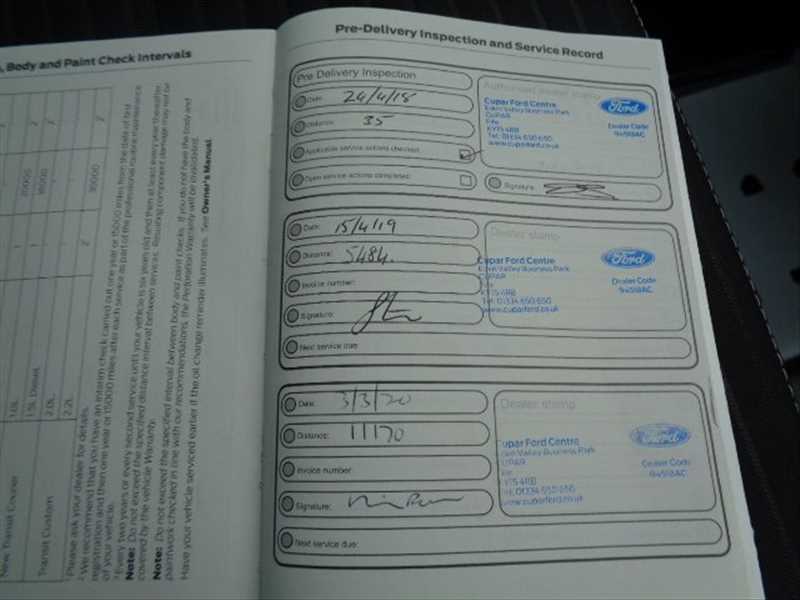 , Body and Paint Check Intervals
1
20000
2
1
16000
2
2
30000
2
New Transit Courier
1.0L
1.5L Diesel
Transit Custom
2.0L
2.2L
Please ask your dealer for details.
We recommend that you have an interim check carried out one year or 15000 miles from the date of first
registration and then one year or 15000 miles after each service as part of the professional routine maintenance
of your vehicle.
Every two years or every second service until your vehicle is six years old and then at least every year thereafter.
Note: Do not exceed the specified distance interval between services. Resulting component damage may not be
covered by the vehicle Warranty.
Note: Do not exceed the specified interval between body and paint checks. If you do not have the body and
paintwork checked in line with our recommendations, the Perforation Warranty will be invalidated.
Have your vehicle serviced earlier if the oil change reminder illuminates. See Owner's Manual.
Pre-Delivery Inspection and Service Record
Pre Delivery Inspection
Date: 24/4/18
Distance: 35
Applicable service actions checked:
Open service actions completed:
Authorised dealer stamp
Cupar Ford Centre
Eden Valley Business Park
CUPAR
Fife
KY15 4RB
Tel: 01334 650 650
www.cuparford.co.uk
Ford
Dealer Code
94518AC
Signature:
Date: 15/4/19
Distance: 5484.
Invoice number:
Signature:
Next service due:
Dealer stamp
Cupar Ford Centre
Eden Valley Business Park
CUPAR
Fife
KY15 4RB
Tel: 01334 650 650
www.cuparford.co.uk
Ford
Dealer Code
94518AC
Date: 3/3/20
Distance: 11170
Invoice number:
Signature:
Next service due:
Dealer stamp
Cupar Ford Centre
Eden Valley Business Park
CUPAR
Fife
KY15 4RB
Tel: 01334 650 650
www.cuparford.co.uk
Ford
Dealer Code
94518AC